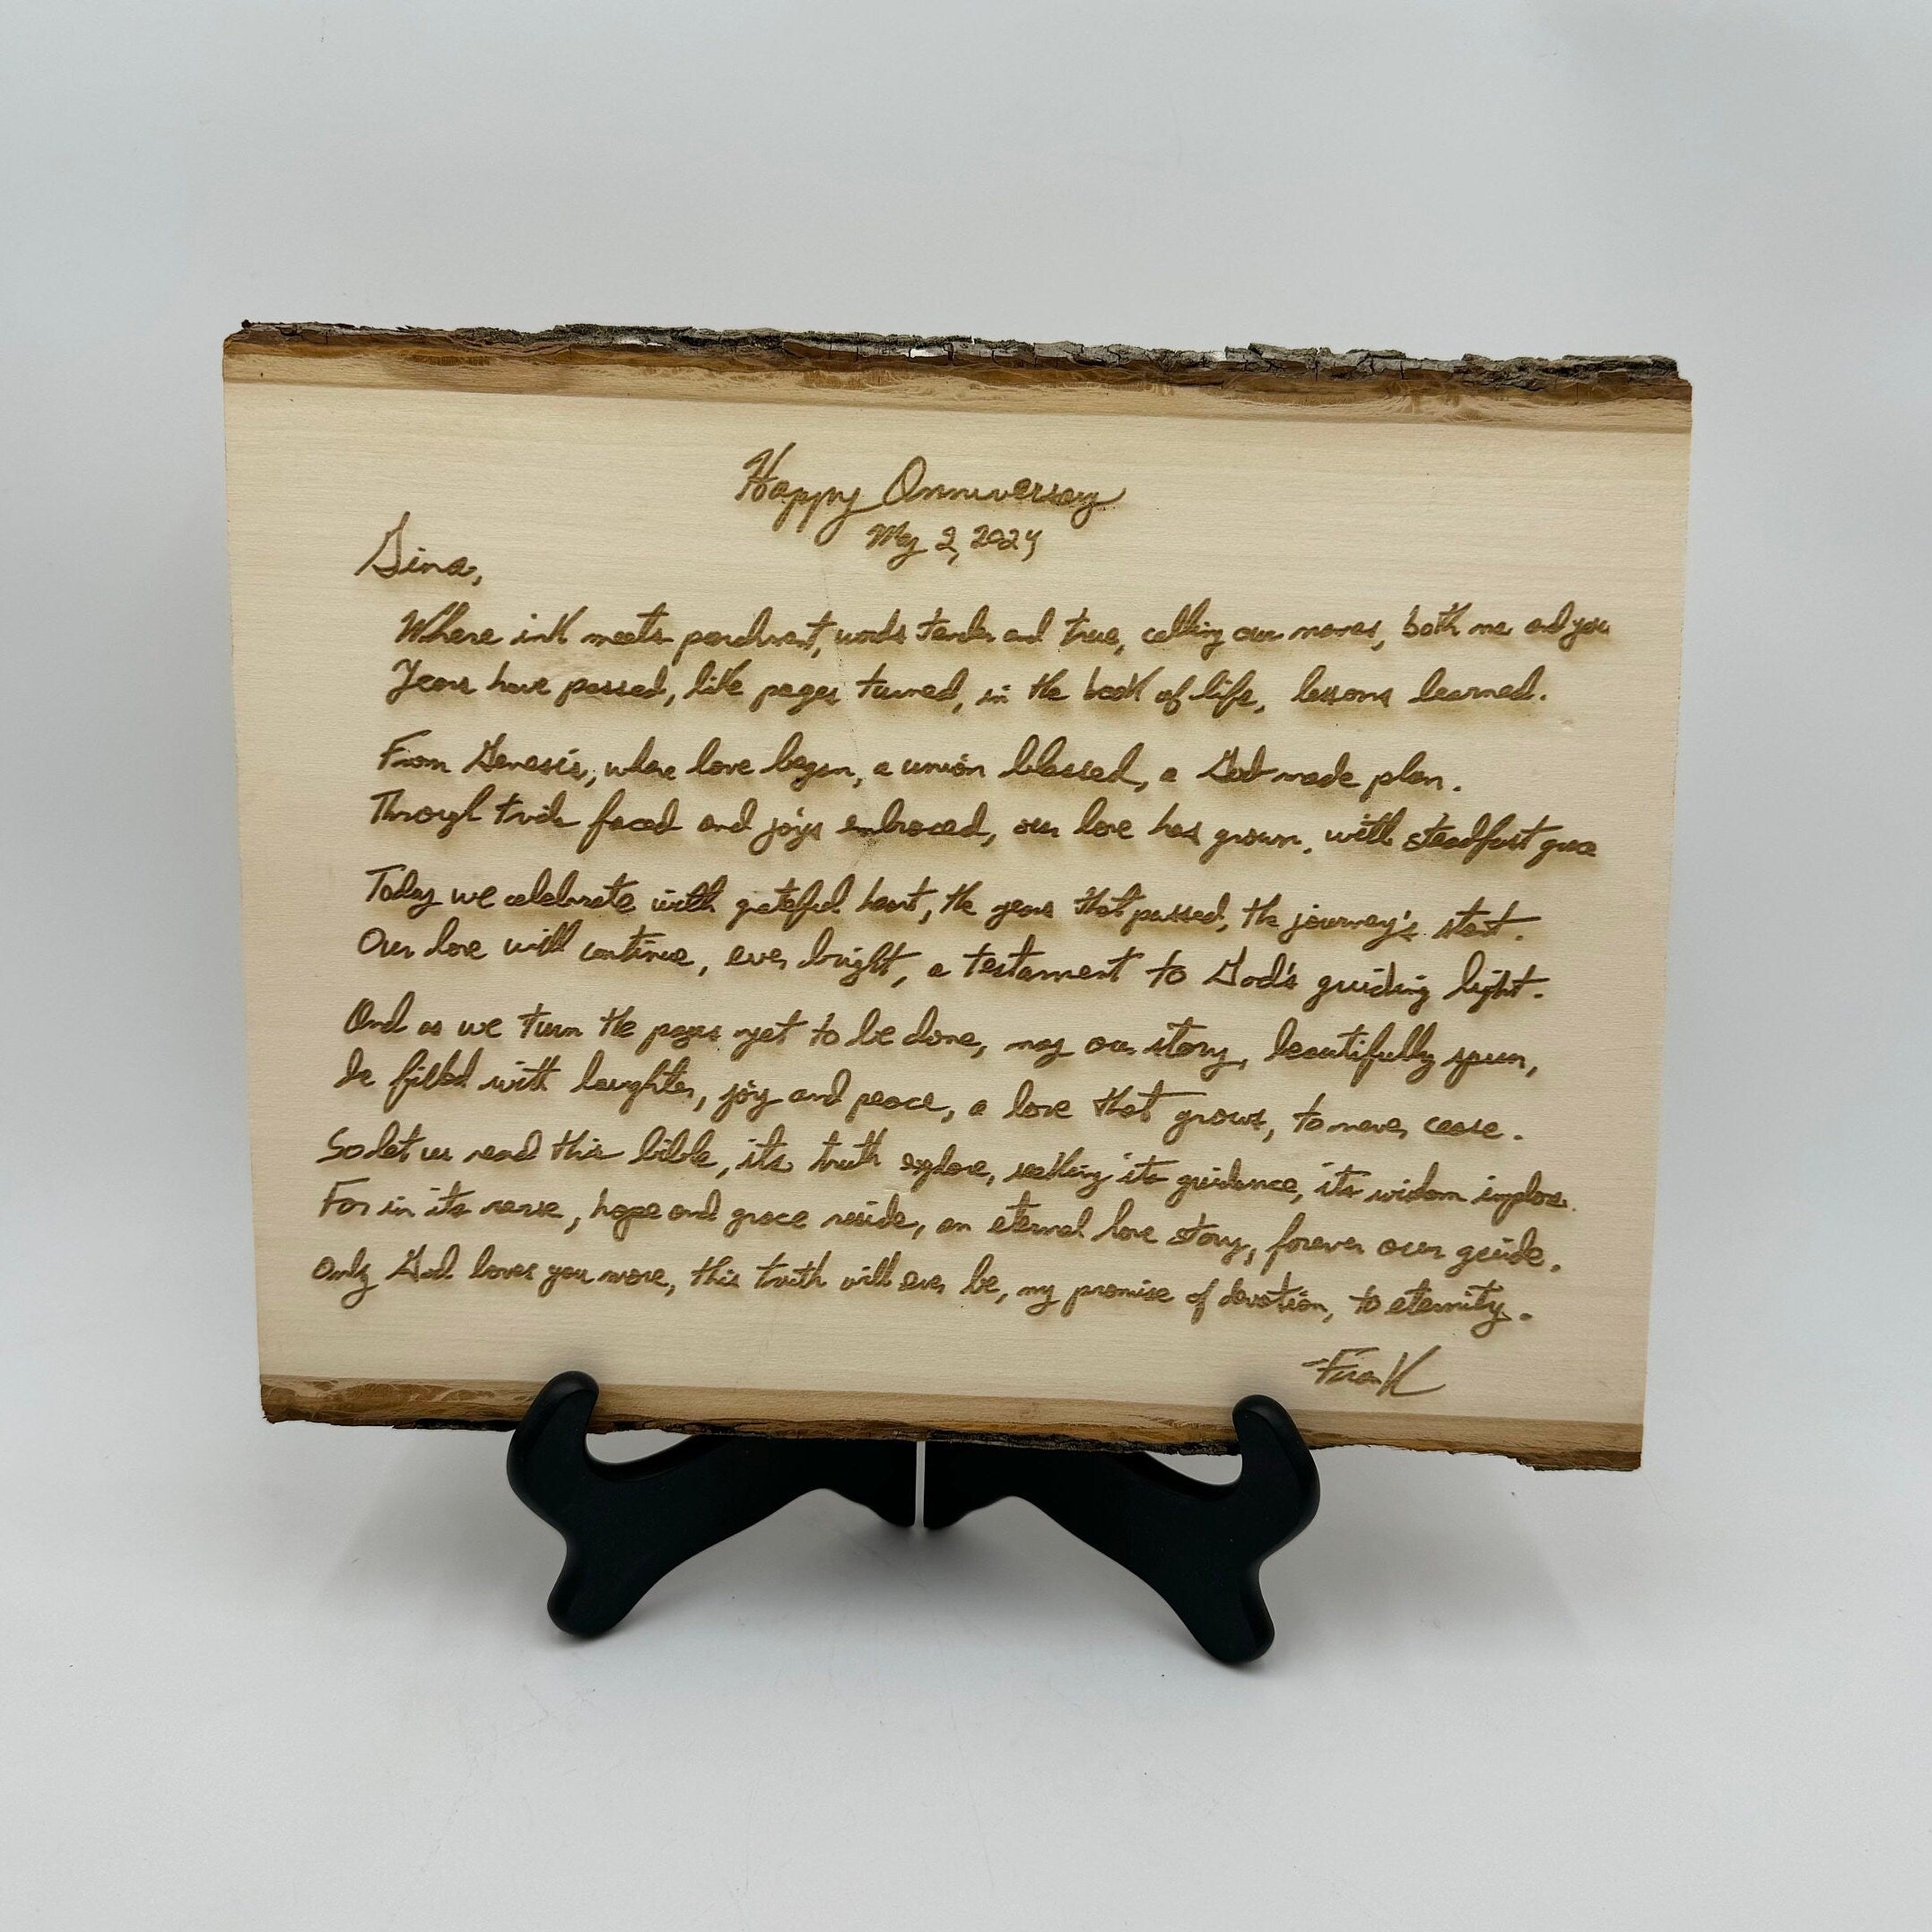 Happy Anniversary
May 2, 2024
Gina,
Where ink meets parchment, words tender and true, calling our names, both me and you
Years have passed, like pages turned, in the book of life, lessons learned.
From Genesis, where love began, a union blessed, a God made plan.
Through trials faced and joys embraced, our love has grown, with steadfast grace
Today we celebrate with grateful heart, the years that passed, the journey's start.
Our love will continue, ever bright, a testament to God's guiding light.
And as we turn the pages yet to be done, may our story, beautifully spun,
Be filled with laughter, joy and peace, a love that grows, to never cease.
So let us read this bible, its truth explore, seeking its guidance, its wisdom implore.
For in its verse, hope and grace reside, an eternal love story, forever our guide.
Only God loves you more, this truth will ever be, my promise of devotion, to eternity.
-Frank